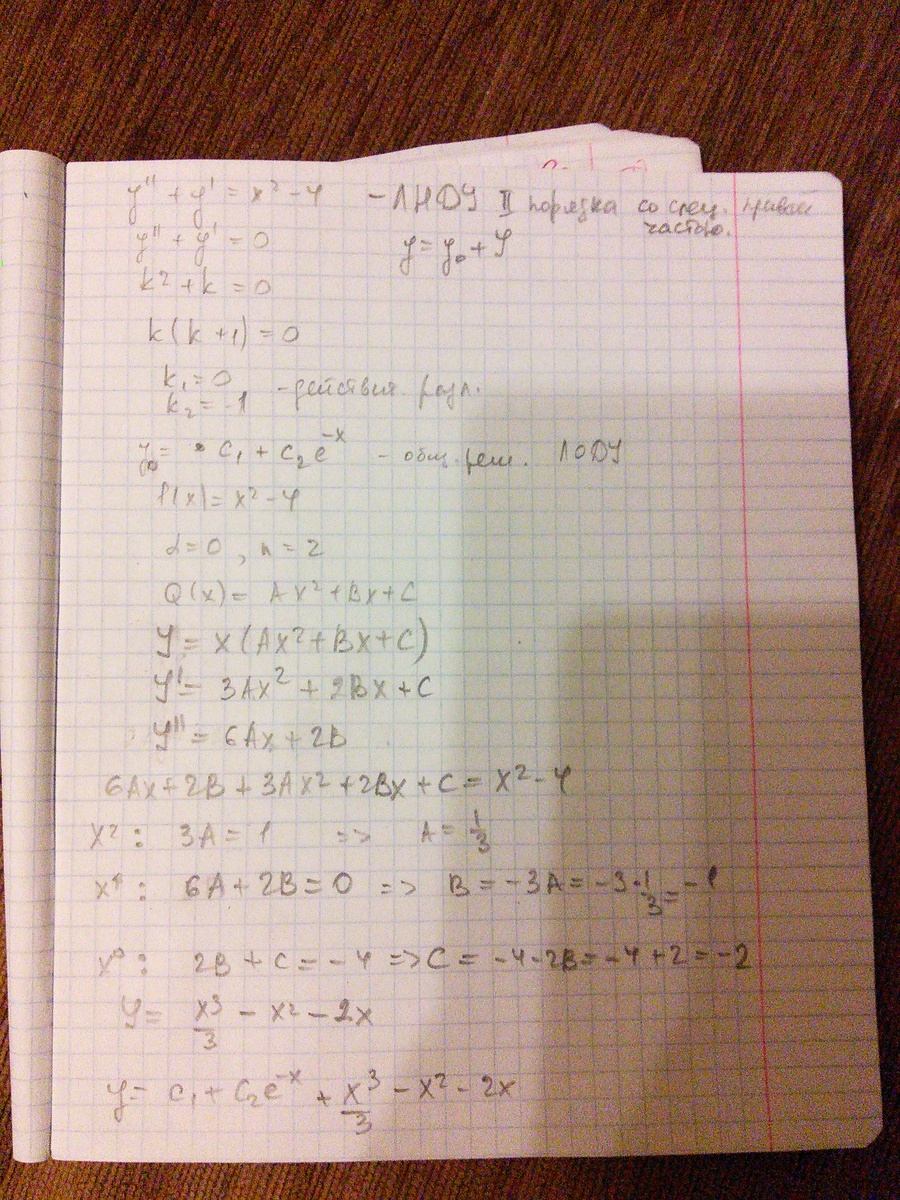 y'' + y' = x² - 4 - ЛНДУ II порядка со спец. правой
частью.
y'' + y' = 0 y = y₀ + Y
k² + k = 0
k(k+1) = 0
k₁ = 0
k₂ = -1 - действит. разл.
y₀ = C₁ + C₂e⁻ˣ - общ. реш. ЛОДУ
f(x) = x² - 4
α = 0, n = 2
Q(x) = Ax² + Bx + C
Y = x(Ax² + Bx + C)
Y' = 3Ax² + 2Bx + C
Y'' = 6Ax + 2B
6Ax + 2B + 3Ax² + 2Bx + C = x² - 4
x²: 3A = 1 => A = 1/3
x¹: 6A + 2B = 0 => B = -3A = -3·1/3 = -1
x⁰: 2B + C = -4 => C = -4-2B = -4+2 = -2
Y = x³/3 - x² - 2x
y = C₁ + C₂e⁻ˣ + x³/3 - x² - 2x